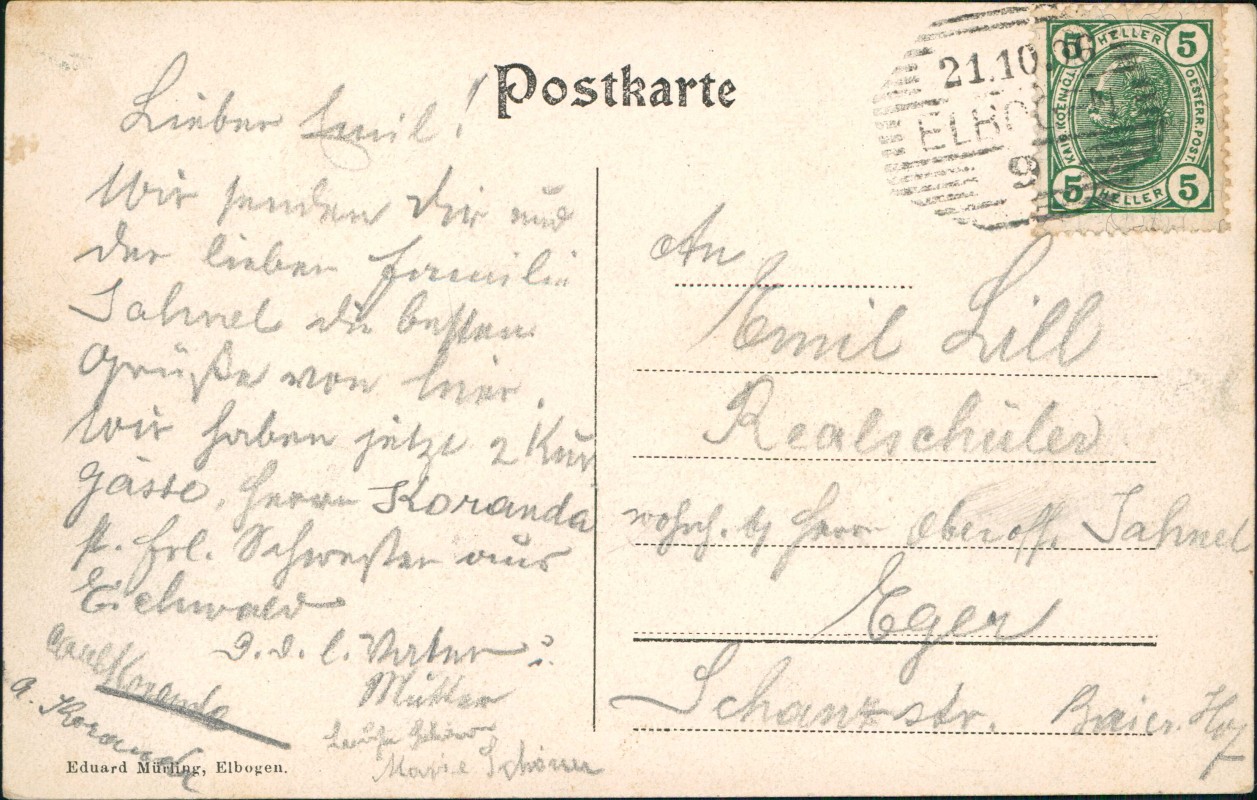 Postkarte
21.10.06
ELBO
9
5 HELLER 5
KAIS. KOENIGL. OESTERR. POST.
5 HELLER 5
Lieber Emil!
Wir senden Dir und
der lieben Familie
Jahnel die besten
Grüße von hier.
Wir haben jetzt 2 Kur
gässte, Herrn Koranda
st. Frl. Schwester aus
Eichwald
D. d. l. Vater u.
Mutter
Carl Koranda
A. Koranda
Marie Schöner
Eduard Mürling, Elbogen.
An
Emil Lill
Realschüler
wohnh. b/ Herrn Oberoff. Jahnel
Eger
Schanzstr. Baier. Hof